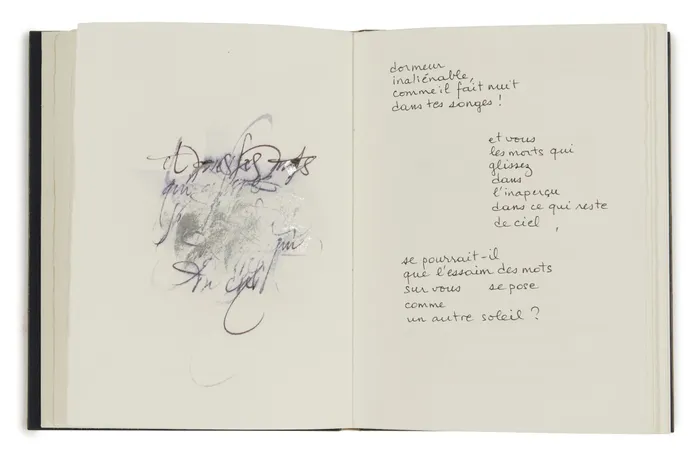 et vous les morts
qui
du ciel
dormeur
inaliénable,
comme il fait nuit
dans tes songes !
et vous
les morts qui
glissez
dans
l'inaperçu
dans ce qui reste
de ciel,
se pourrait-il
que l'essaim des mots
sur vous se pose
comme
un autre soleil ?